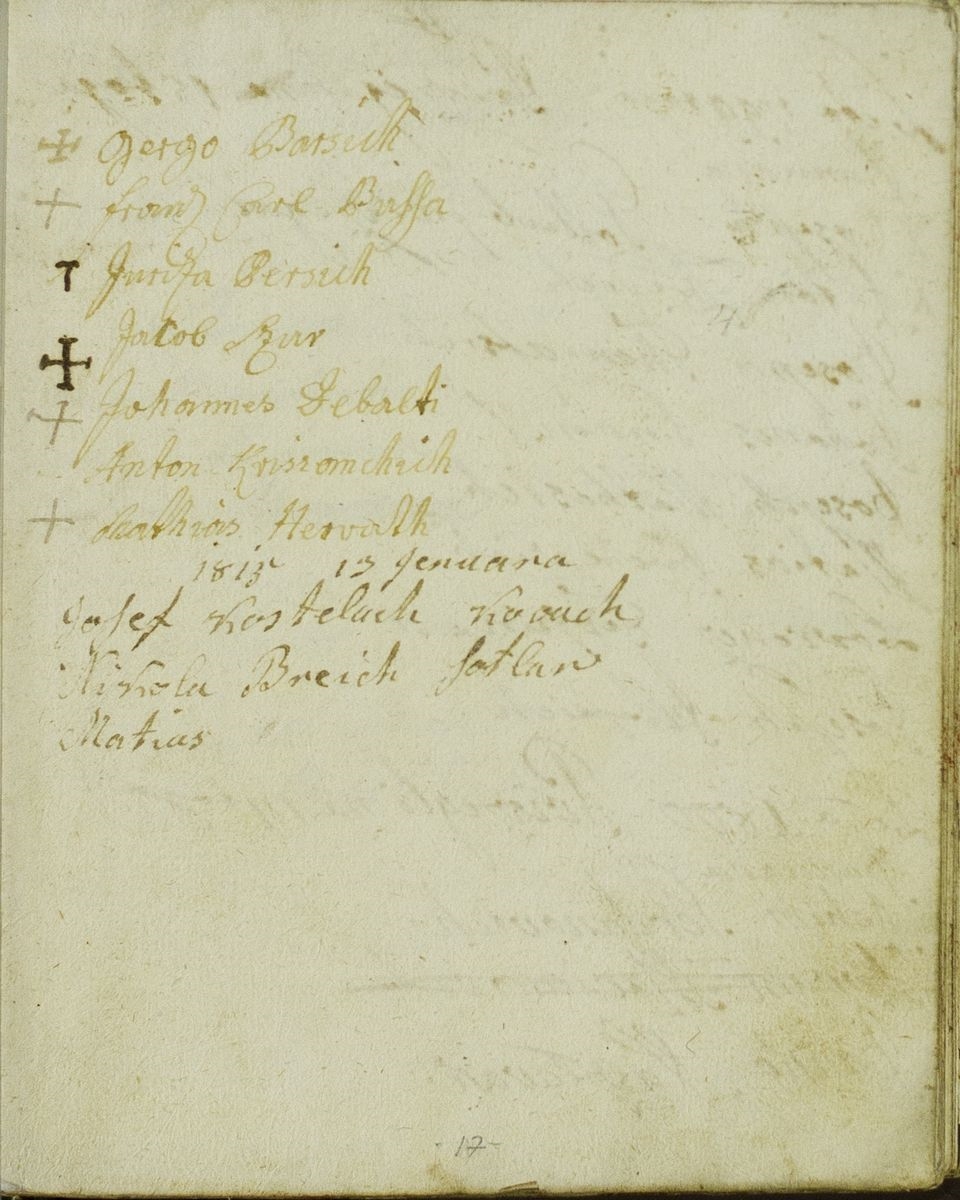 Gergo Barsich
franz Carl Bussa
Juriza Persich
Jacob
Johannes Debalti
Anton Krisromchich
Mathias Hervath
1815 13 Jenuara
Josef Kostelach Kovach
Nikola Breich Sotlar
Matias
17